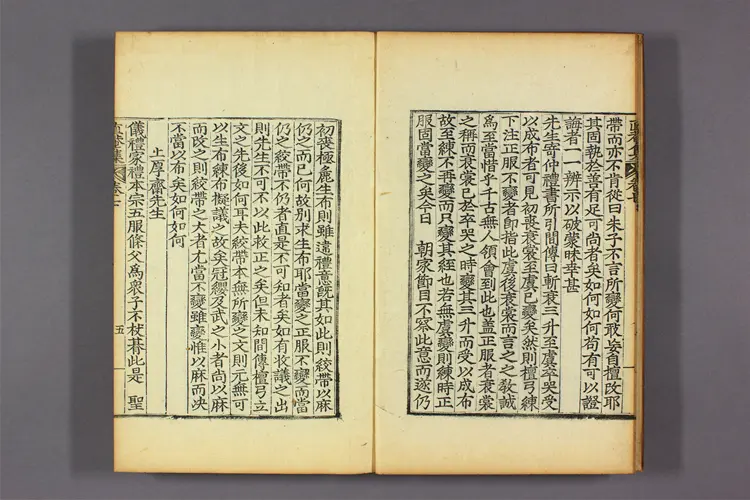 帶而亦不肯從曰朱子不言所變何敢妄自擅改耶
其固執於善有足可尚者矣如何如何苟有可以證
誨者一一辨示以破蒙昧幸甚
先生寄仲禮書所引間傳曰斬衰三升至虞卒哭受
以成布者可見初喪衰裳至虞已變矣然則檀弓練
下注正服不變者卽指此虞後衰裳而言之之敎誠
爲至當惜乎千古無人領會到此也盖正服者衰裳
之稱而衰裳已於卒哭之時變其三升而受以成布
故至練不再變而只變其絰也若無虞變則練時正
服固當變之矣今日 朝家節目不察此意而遂仍
初喪極麁生布則雖違禮意旣其如此則絞帶以麻
仍之而已何故別求生布耶當變之正服不變而當
仍之絞帶不仍者直是不可知者矣如有收議之出
則先生不可不以此救正之矣但未知間傳檀弓立
文之先後如何耳夫絞帶本無所變之文則元無可
以生布練布擬議之故矣冠纓及武之小者尚以麻
而改之則絞帶之大者尤當不變雖變惟以麻而决
不當以布矣如何如何
上厚齋先生
儀禮家禮本宗五服條父爲衆子不杖朞此是 聖
五